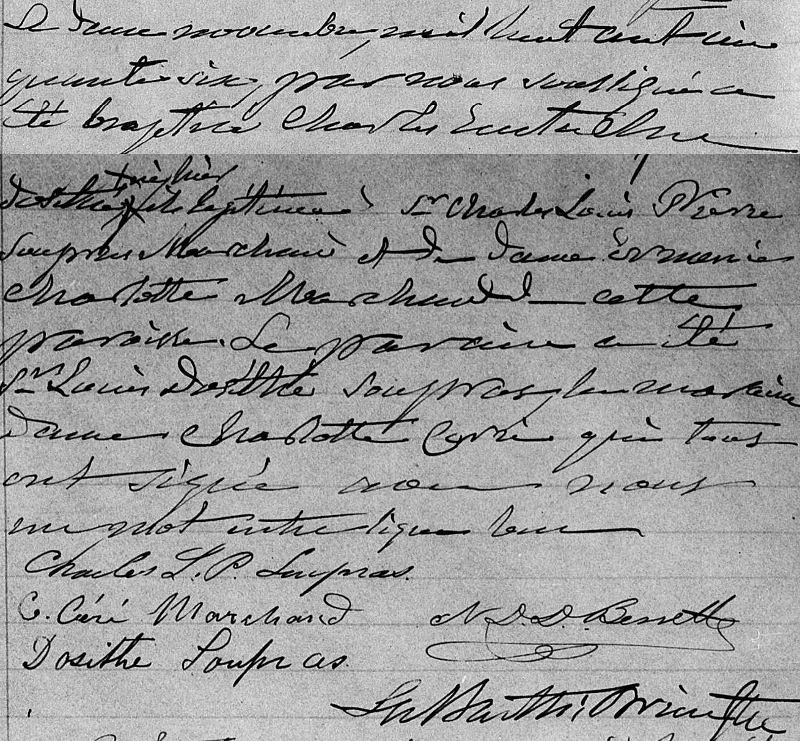 Le douze novembre, mil huit cent cin
quante six, par nous soussigné a
été baptisé Charles Eustache
hier
Dosithé, fils légitime de Sr Charles Louis Pierre
Soupras Marchand et de dame Ermenie
Charlotte Marchand de cette
paroisse. Le parrain a été
Sr Louis Dosithé Soupras, la marraine
dame Charlotte Cerré qui tous
ont signé avec nous
un mot entre ligne bon
Charles L. P. Soupras.
C. Céré Marchand N. D. D. Bessette
Dosithe Soupras